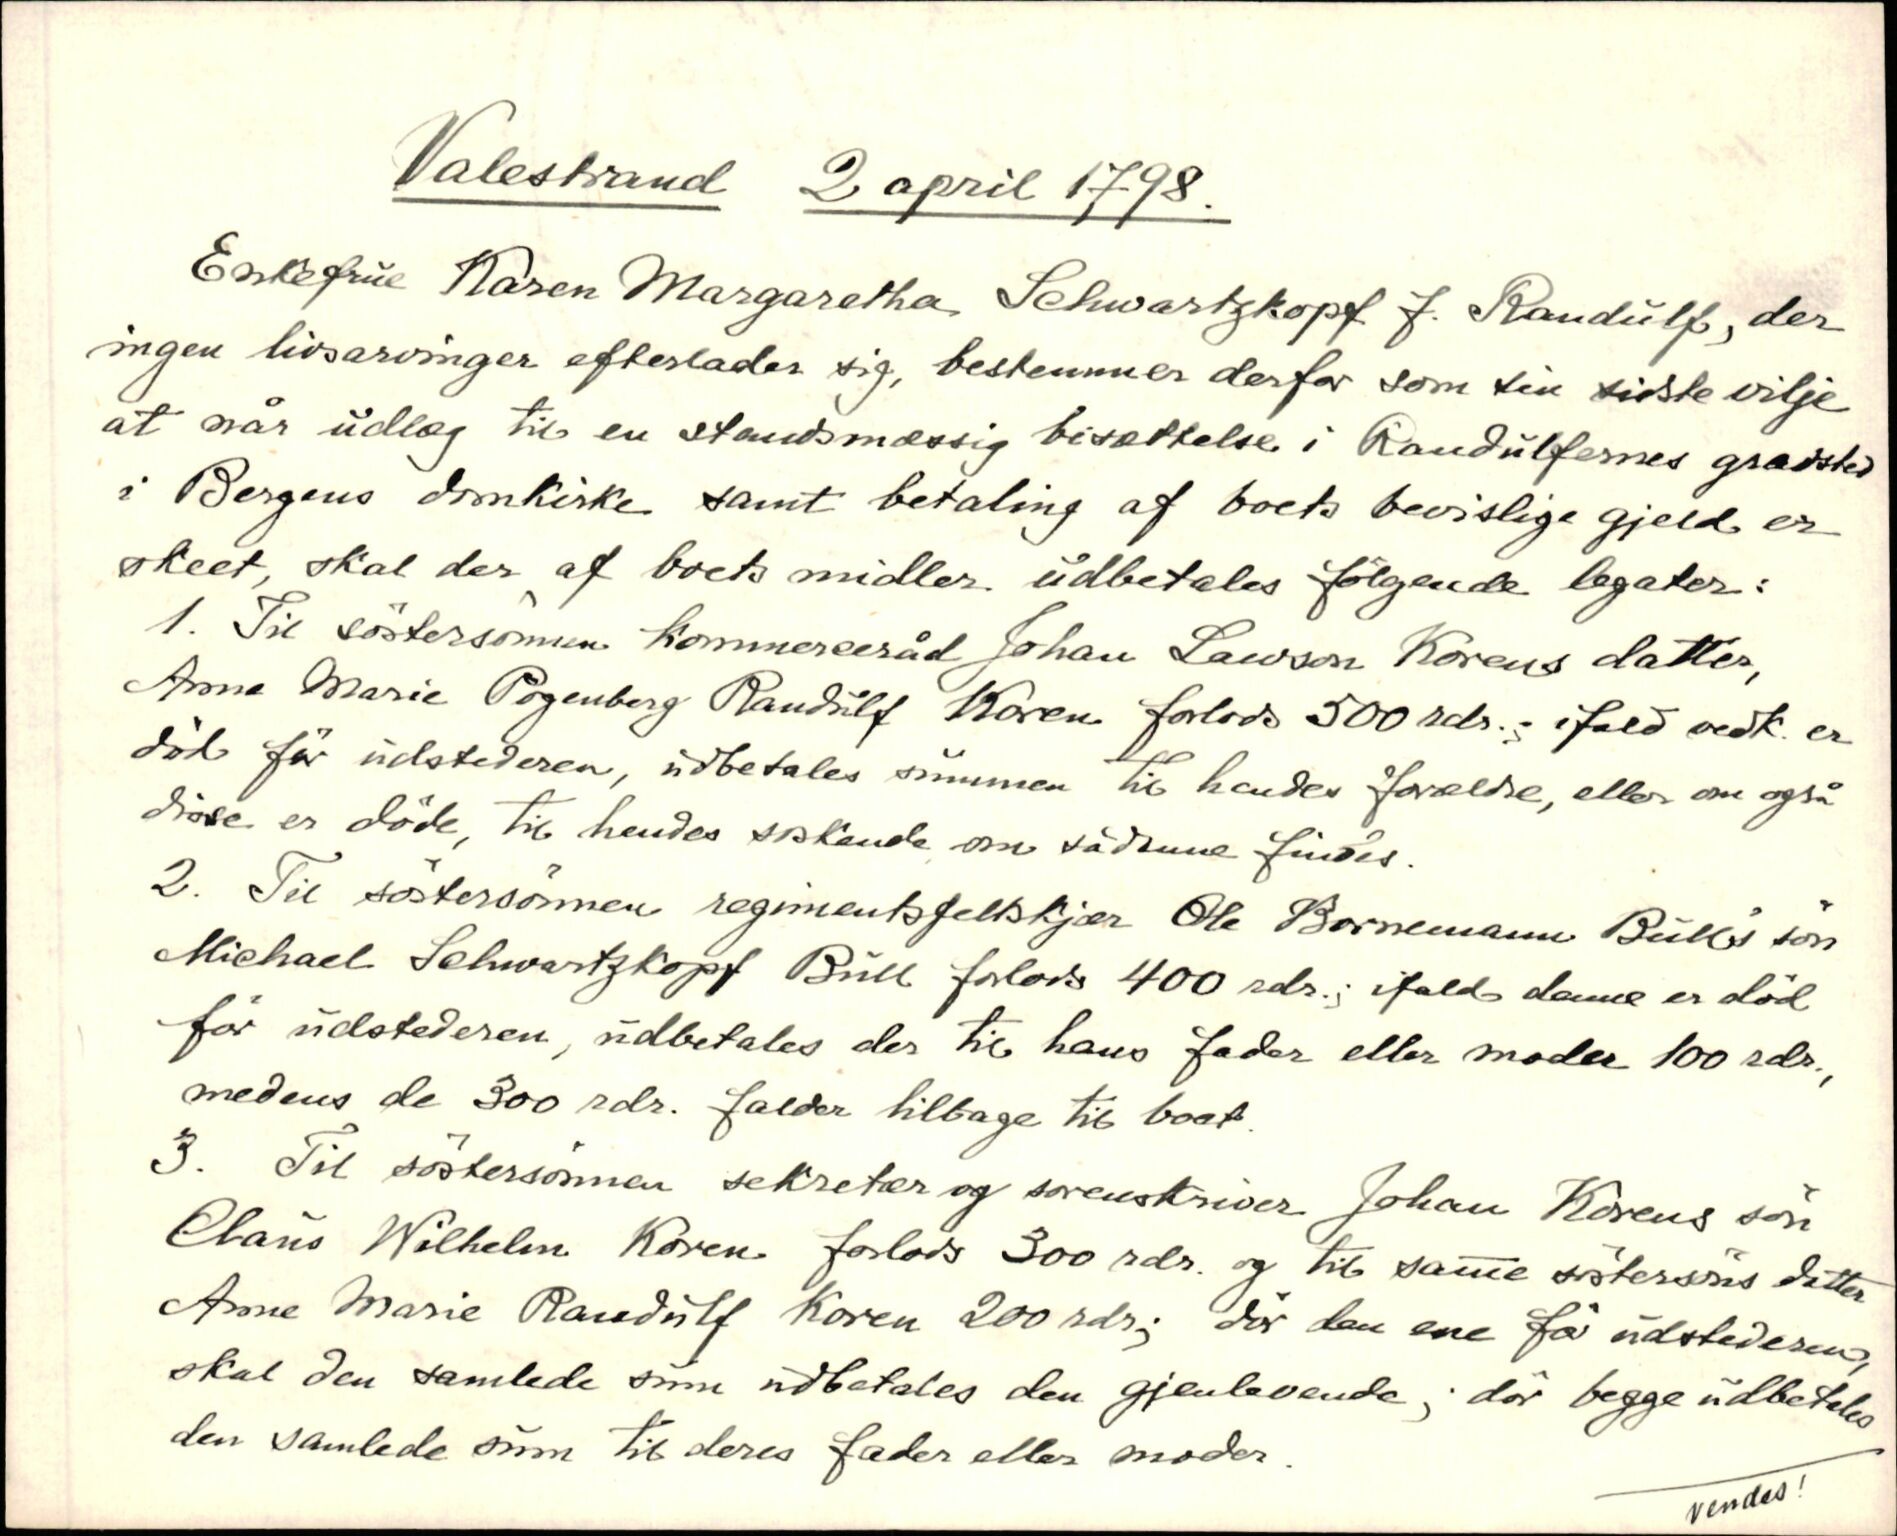 Valestrand 2 april 1798.
Enkefrue Karen Margaretha Schwartzkopf f. Randulf, der
ingen livsarvinger efterlader sig, bestemmer derfor som sin sidste vilje
at når udlæg til en standsmæssig bisættelse i Randulfernes gravsted
i Bergens domkirke samt betaling af boets bevislige gjeld er
skeet, skal der af boets midler udbetales følgende legater:
1. Til söstersönnen kommerceråd Johan Lawson Korens datter,
Anne Marie Pogenberg Randulf Koren forlods 500 rdr.; ifald vedk. er
död för udstederen, udbetales summen til hendes forældre, eller om også
disse er döde, til hendes söskende om sådanne findes.
2. Til söstersönnen regimentsfeltskjær Ole Bornemann Bull's sön
Michael Schwartzkopf Bull forlods 400 rdr.; ifald denne er död
för udstederen, udbetales der til hans fader eller moder 100 rdr.,
medens de 300 rdr. falder tilbage til boet.
3. Til söstersönnen sekretær og sorenskriver Johan Korens sön
Claus Wilhelm Koren forlods 300 rdr. og til samme söstersöns datter
Anne Marie Randulf Koren 200 rdr; dör den ene för udstederen,
skal den samlede sum udbetales den gjenlevende; dör begge udbetales
den samlede sum til deres fader eller moder.
vendes!